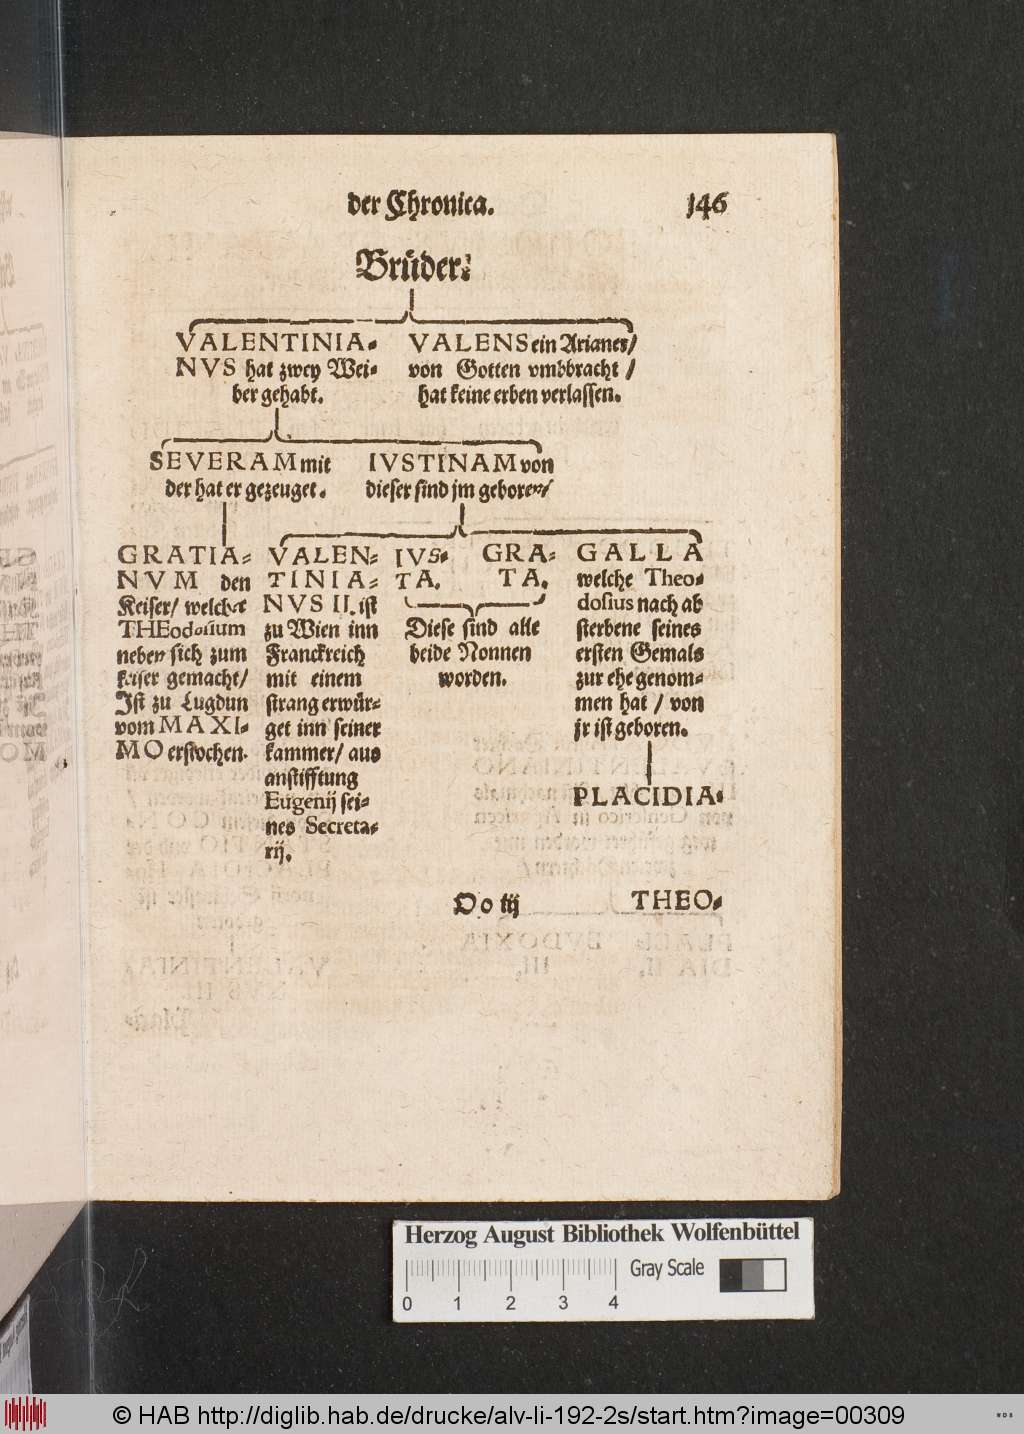 der Chronica. 146
Brüder:
VALENTINIA-
NVS hat zwey Wei-
ber gehabt.
VALENS ein Arianer/
von Gotten vmbbracht /
hat keine erben verlassen.
SEVERAM mit
der hat er gezeuget.
IVSTINAM von
dieser sind jm geboren/
GRATIA-
NVM den
Keiser/ welcher
THEodosium
neben sich zum
keiser gemacht/
Ist zu Lugdun
vom MAXI-
MO erstochen.
VALEN-
TINIA-
NVS II. ist
zu Wien inn
Franckreich
mit einem
strang erwür-
get inn seiner
kammer/ aus
anstifftung
Eugenij sei-
nes Secreta-
rij.
IVS-
TA.
GRA-
TA.
Diese sind alle
beide Nonnen
worden.
GALLA
welche Theo-
dosius nach ab
sterbene seines
ersten Gemals
zur ehe genom-
men hat / von
jr ist geboren.
PLACIDIA.
Oo iij THEO-
Herzog August Bibliothek Wolfenbüttel
Gray Scale
0 1 2 3 4
© HAB http://diglib.hab.de/drucke/alv-li-192-2s/start.htm?image=00309